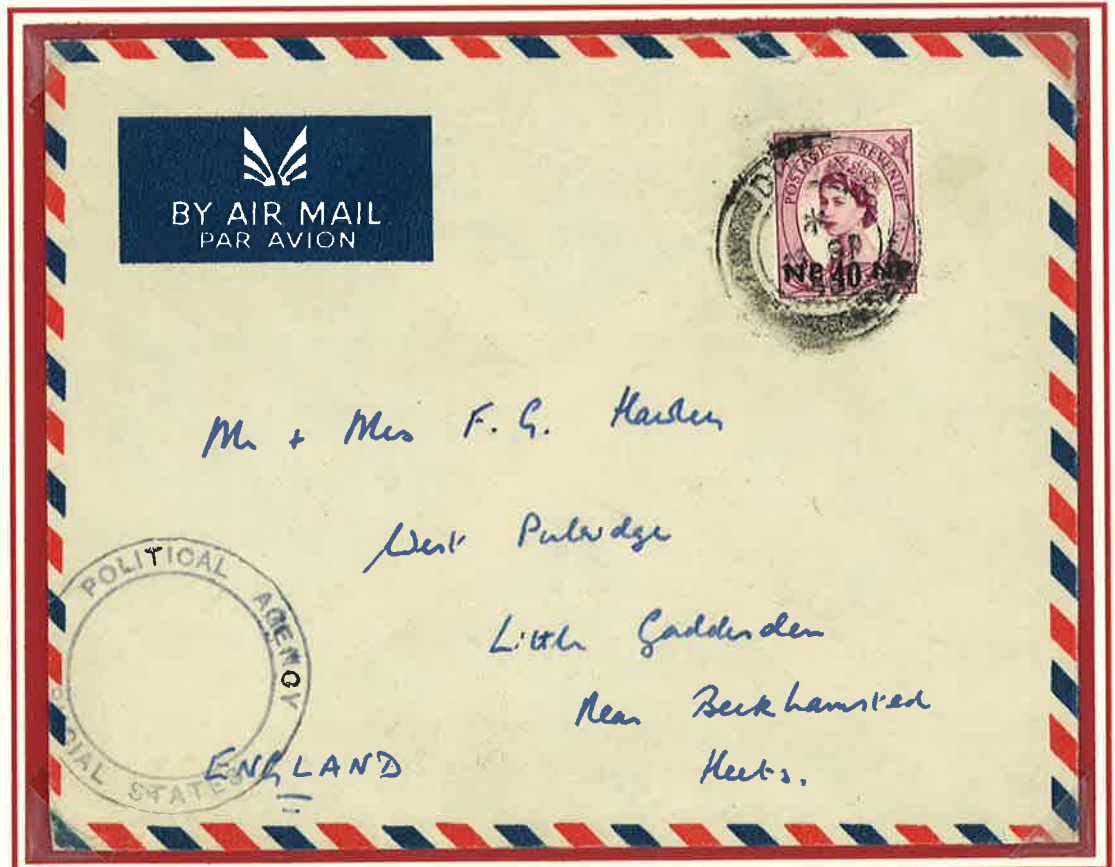 BY AIR MAIL
PAR AVION
POSTAGE REVENUE
NP 40 NP
Mr + Mrs F. G.
West
Little Gaddesden
Near Berkhamsted
Herts.
ENGLAND
POLITICAL AGENCY
CIAL STATES